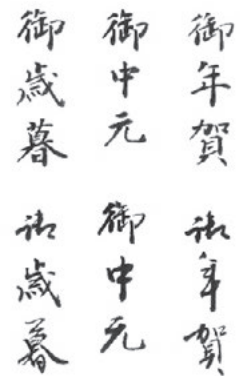 御年賀
御中元
御歳暮
御年賀
御中元
御歳暮